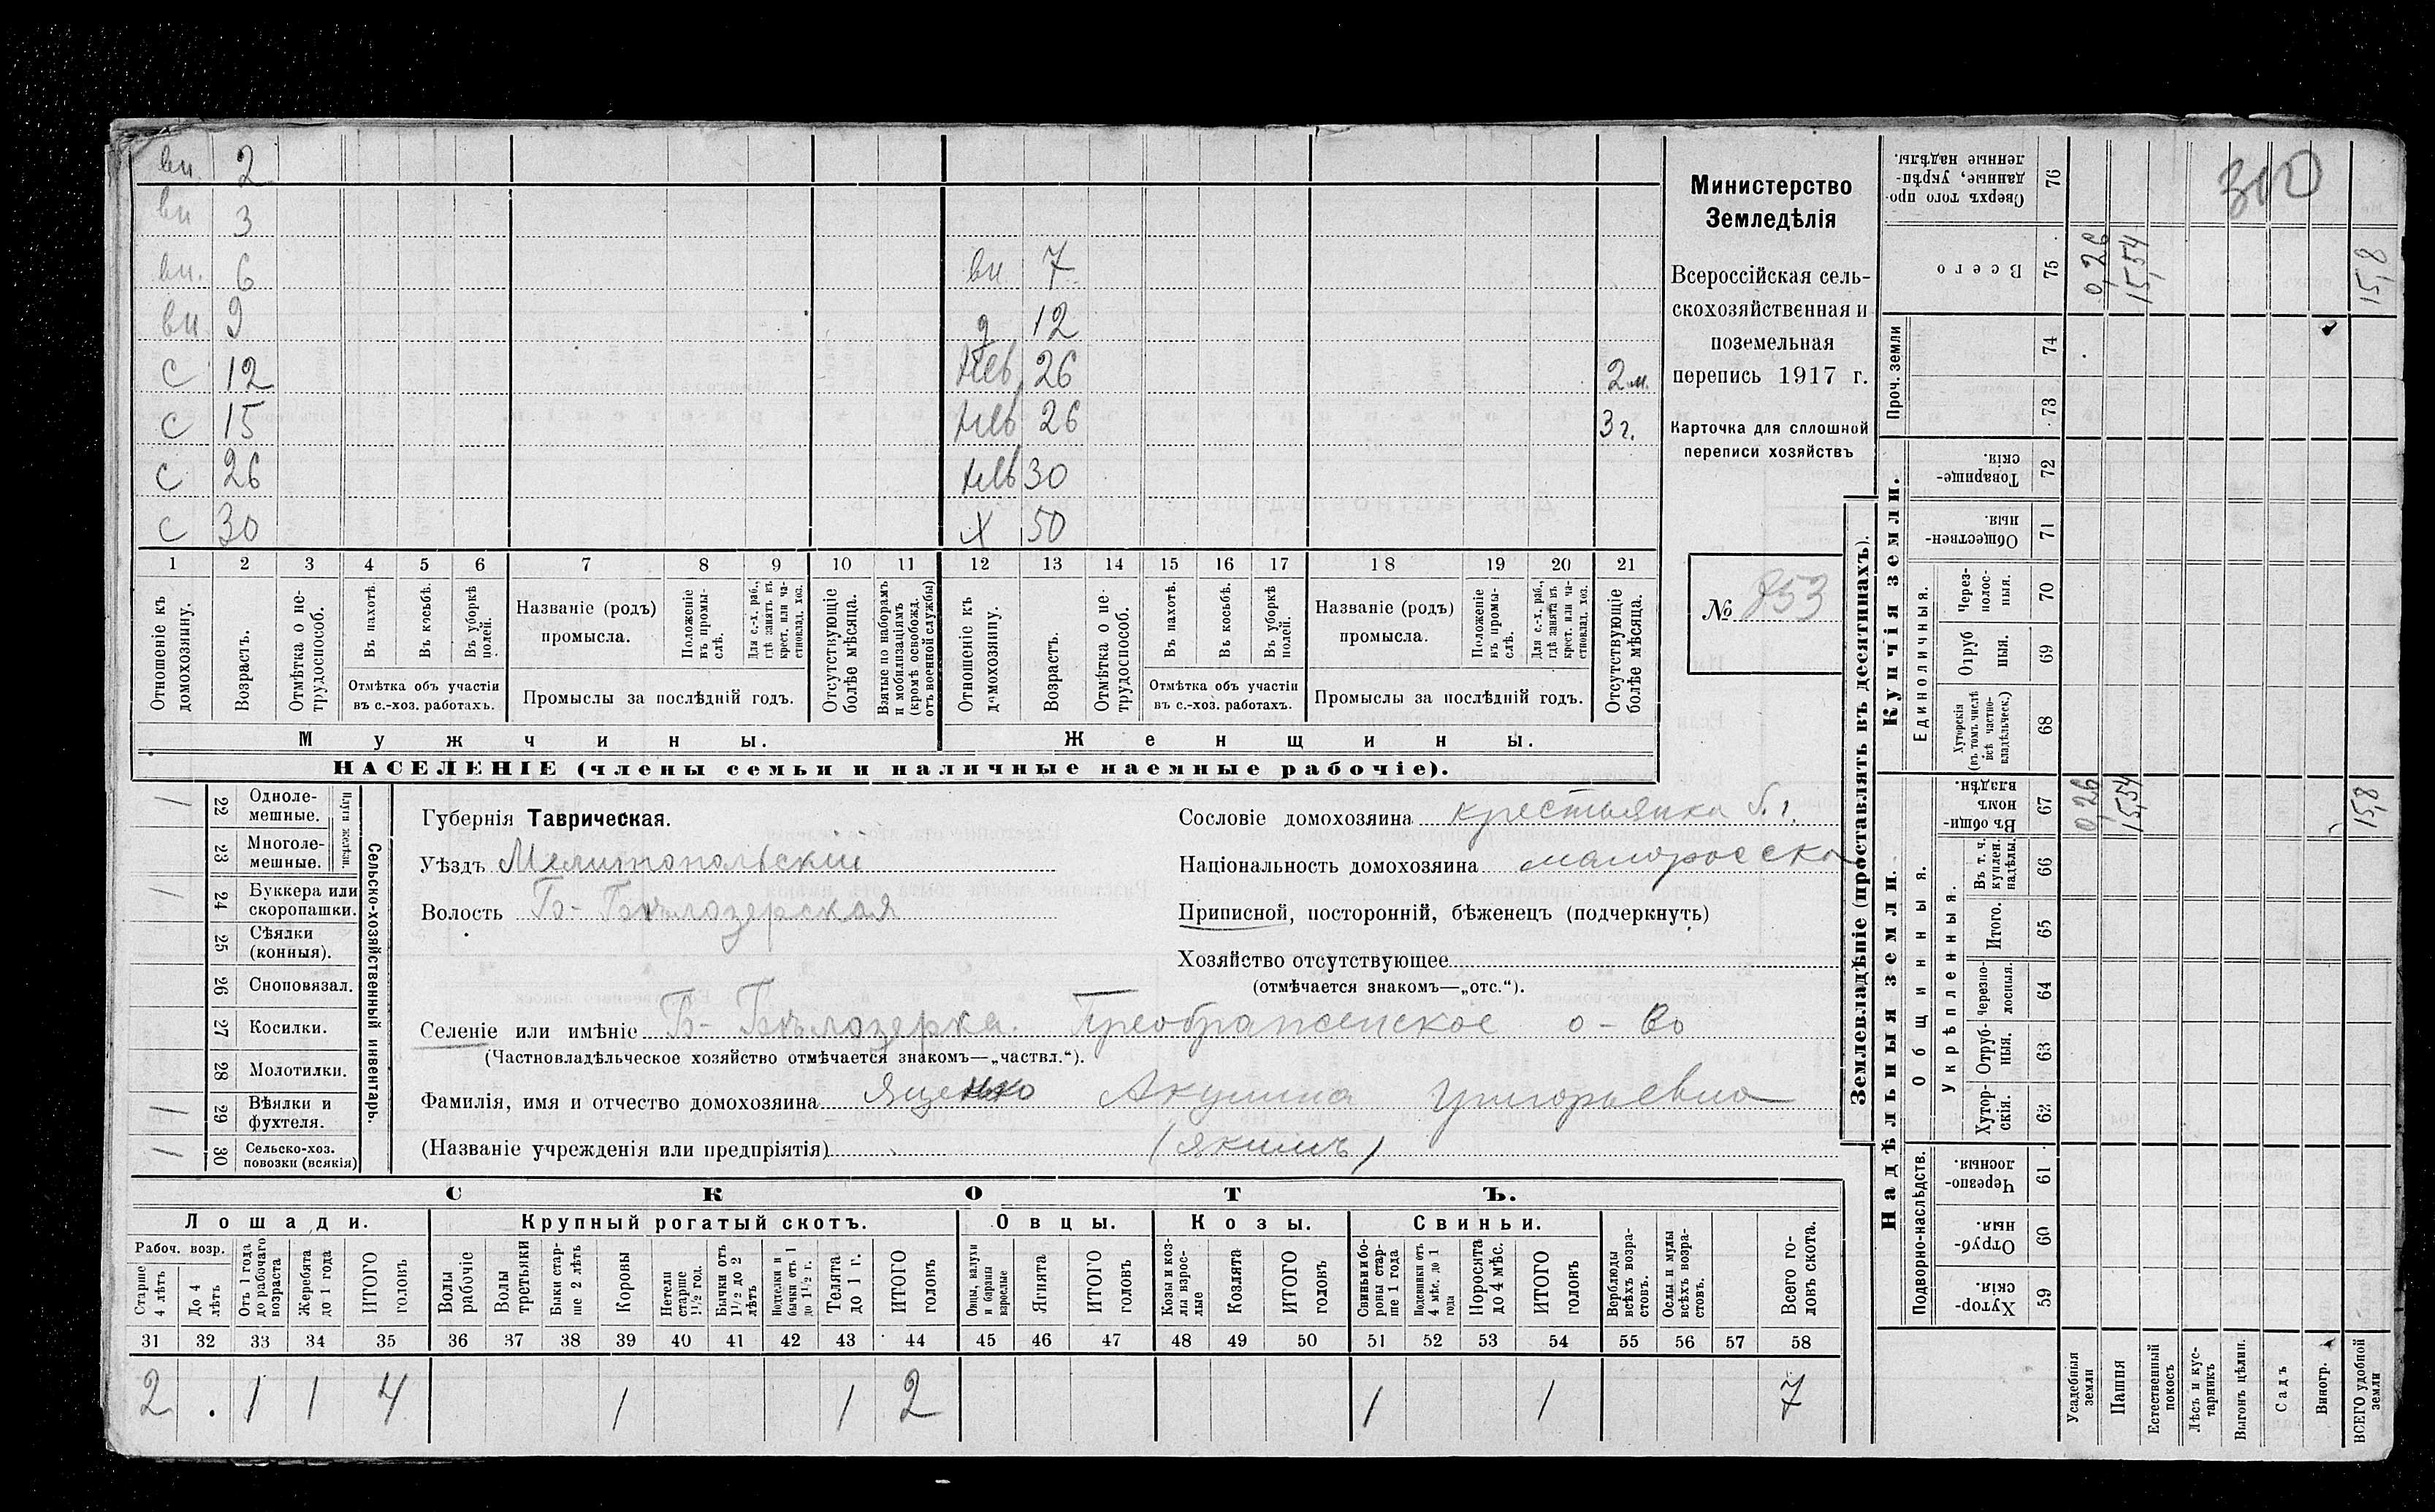 вн. 2
вн 3
вн. 6 вн 7
вн. 9 д 12
с 12 нев. 26 2 м.
с 15 нев 26 3 г.
с 26 нев 30
с 30 х 50
1 2 3 4 5 6 7 8 9 10 11 12 13 14 15 16 17 18 19 20 21
Отношеніе къ домохозяину.
Возрастъ.
Отмѣтка о нетрудоспособ.
Въ пахотѣ.
Въ косьбѣ.
Въ уборкѣ полей.
Отмѣтка объ участіи
въ с.-хоз. работахъ.
Названіе (родъ)
промысла.
Положеніе въ промыслѣ.
Для с.-х. раб., гдѣ занятъ въ крест. или частновлад. хоз.
Промыслы за послѣдній годъ.
Отсутствующіе болѣе мѣсяца.
Взятые по наборамъ и мобилизаціямъ (кромѣ освобожд. отъ военной службы)
Отношеніе къ домохозяину.
Возрастъ.
Отмѣтка о нетрудоспособ.
Въ пахотѣ.
Въ косьбѣ.
Въ уборкѣ полей.
Отмѣтка объ участіи
въ с.-хоз. работахъ.
Названіе (родъ)
промысла.
Положеніе въ промыслѣ.
Для с.-х. раб., гдѣ занята въ крест. или частновлад. хоз.
Промыслы за послѣдній годъ.
Отсутствующіе болѣе мѣсяца.
Мужчины. Женщины.
НАСЕЛЕНІЕ (члены семьи и наличные наемные рабочіе).
Министерство
Земледѣлія
Всероссійская сель-
скохозяйственная и
поземельная
перепись 1917 г.
Карточка для сплошной
переписи хозяйствъ
№ 853
Сельско-хозяйственный инвентарь.
Плуги желѣзн.
/ 22 Одноле-
мешные.
23 Многоле-
мешные.
/ 24 Буккера или
скоропашки.
25 Сѣялки
(конныя).
26 Сноповязал.
27 Косилки.
28 Молотилки.
/ 29 Вѣялки и
фухтеля.
/ 30 Сельско-хоз.
повозки (всякія)
Губернія Таврическая.
Уѣздъ Мелитопольскій
Волость Б- Бѣлозерская
Сословіе домохозяина крестьянка
Національность домохозяина малоросска
Приписной, посторонній, бѣженецъ (подчеркнуть)
Хозяйство отсутствующее
(отмѣчается знакомъ—„отс.“).
Селеніе или имѣніе Б- Бѣлозерка. Преображенское о-во
(Частновладѣльческое хозяйство отмѣчается знакомъ—„частвл.“).
Фамилія, имя и отчество домохозяина Яценко Акулина Григорьевна
(Названіе учрежденія или предпріятія) (Якимъ)
СКОТЪ.
Лошади. Крупный рогатый скотъ. Овцы. Козы. Свиньи.
Рабоч. возр.
Старше 4 лѣтъ
До 4 лѣтъ
Отъ 1 года до рабочаго возраста
Жеребята до 1 года
ИТОГО головъ
Волы рабочіе
Волы третьяки
Быки старше 2 лѣтъ
Коровы
Нетели старше 1½ год.
Бычки отъ 1½ до 2 лѣтъ
Подтелки и бычки отъ 1 до 1½ г.
Телята до 1 г.
ИТОГО головъ
Овцы, валухи и бараны взрослые
Ягнята
ИТОГО головъ
Козы и козлы взрослые
Козлята
ИТОГО головъ
Свиньи и боровы старше 1 года
Подсвинки отъ 4 мѣс. до 1 года
Поросята до 4 мѣс.
ИТОГО головъ
Верблюды всѣхъ возрастовъ.
Ослы и мулы всѣхъ возрастовъ.
Всего головъ скота.
31 32 33 34 35 36 37 38 39 40 41 42 43 44 45 46 47 48 49 50 51 52 53 54 55 56 57 58
2 . 1 1 4 1 1 2 1 1 7
Землевладѣніе (проставлять въ десятинахъ).
Надѣльныя земли. Купчія земли. Проч. земли
Подворно-наслѣдств. Общинныя. Укрѣпленныя. Единоличныя.
310
76 Сверхъ того проданные, укрѣпленные надѣлы.
75 Всего 0,26 15,54 15,8
74
73
72 Товарищескія.
71 Общественныя.
70 Черезполосныя.
69 Отрубныя.
68 Хуторскія (въ томъ числѣ всѣ частновладѣльческ.)
67 Въ общинномъ владѣн. 0,26 15,54 15,8
66 Въ т. ч. куплен. надѣлы.
65 Итого.
64 Черезполосныя.
63 Отрубныя.
62 Хуторскія.
61 Черезполосныя.
60 Отрубныя.
59 Хуторскія.
Усадебныя земли
Пашня
Естественный покосъ
Лѣсъ и кустарникъ
Выгонъ цѣлин.
Садъ
Виногр.
ВСЕГО удобной земли